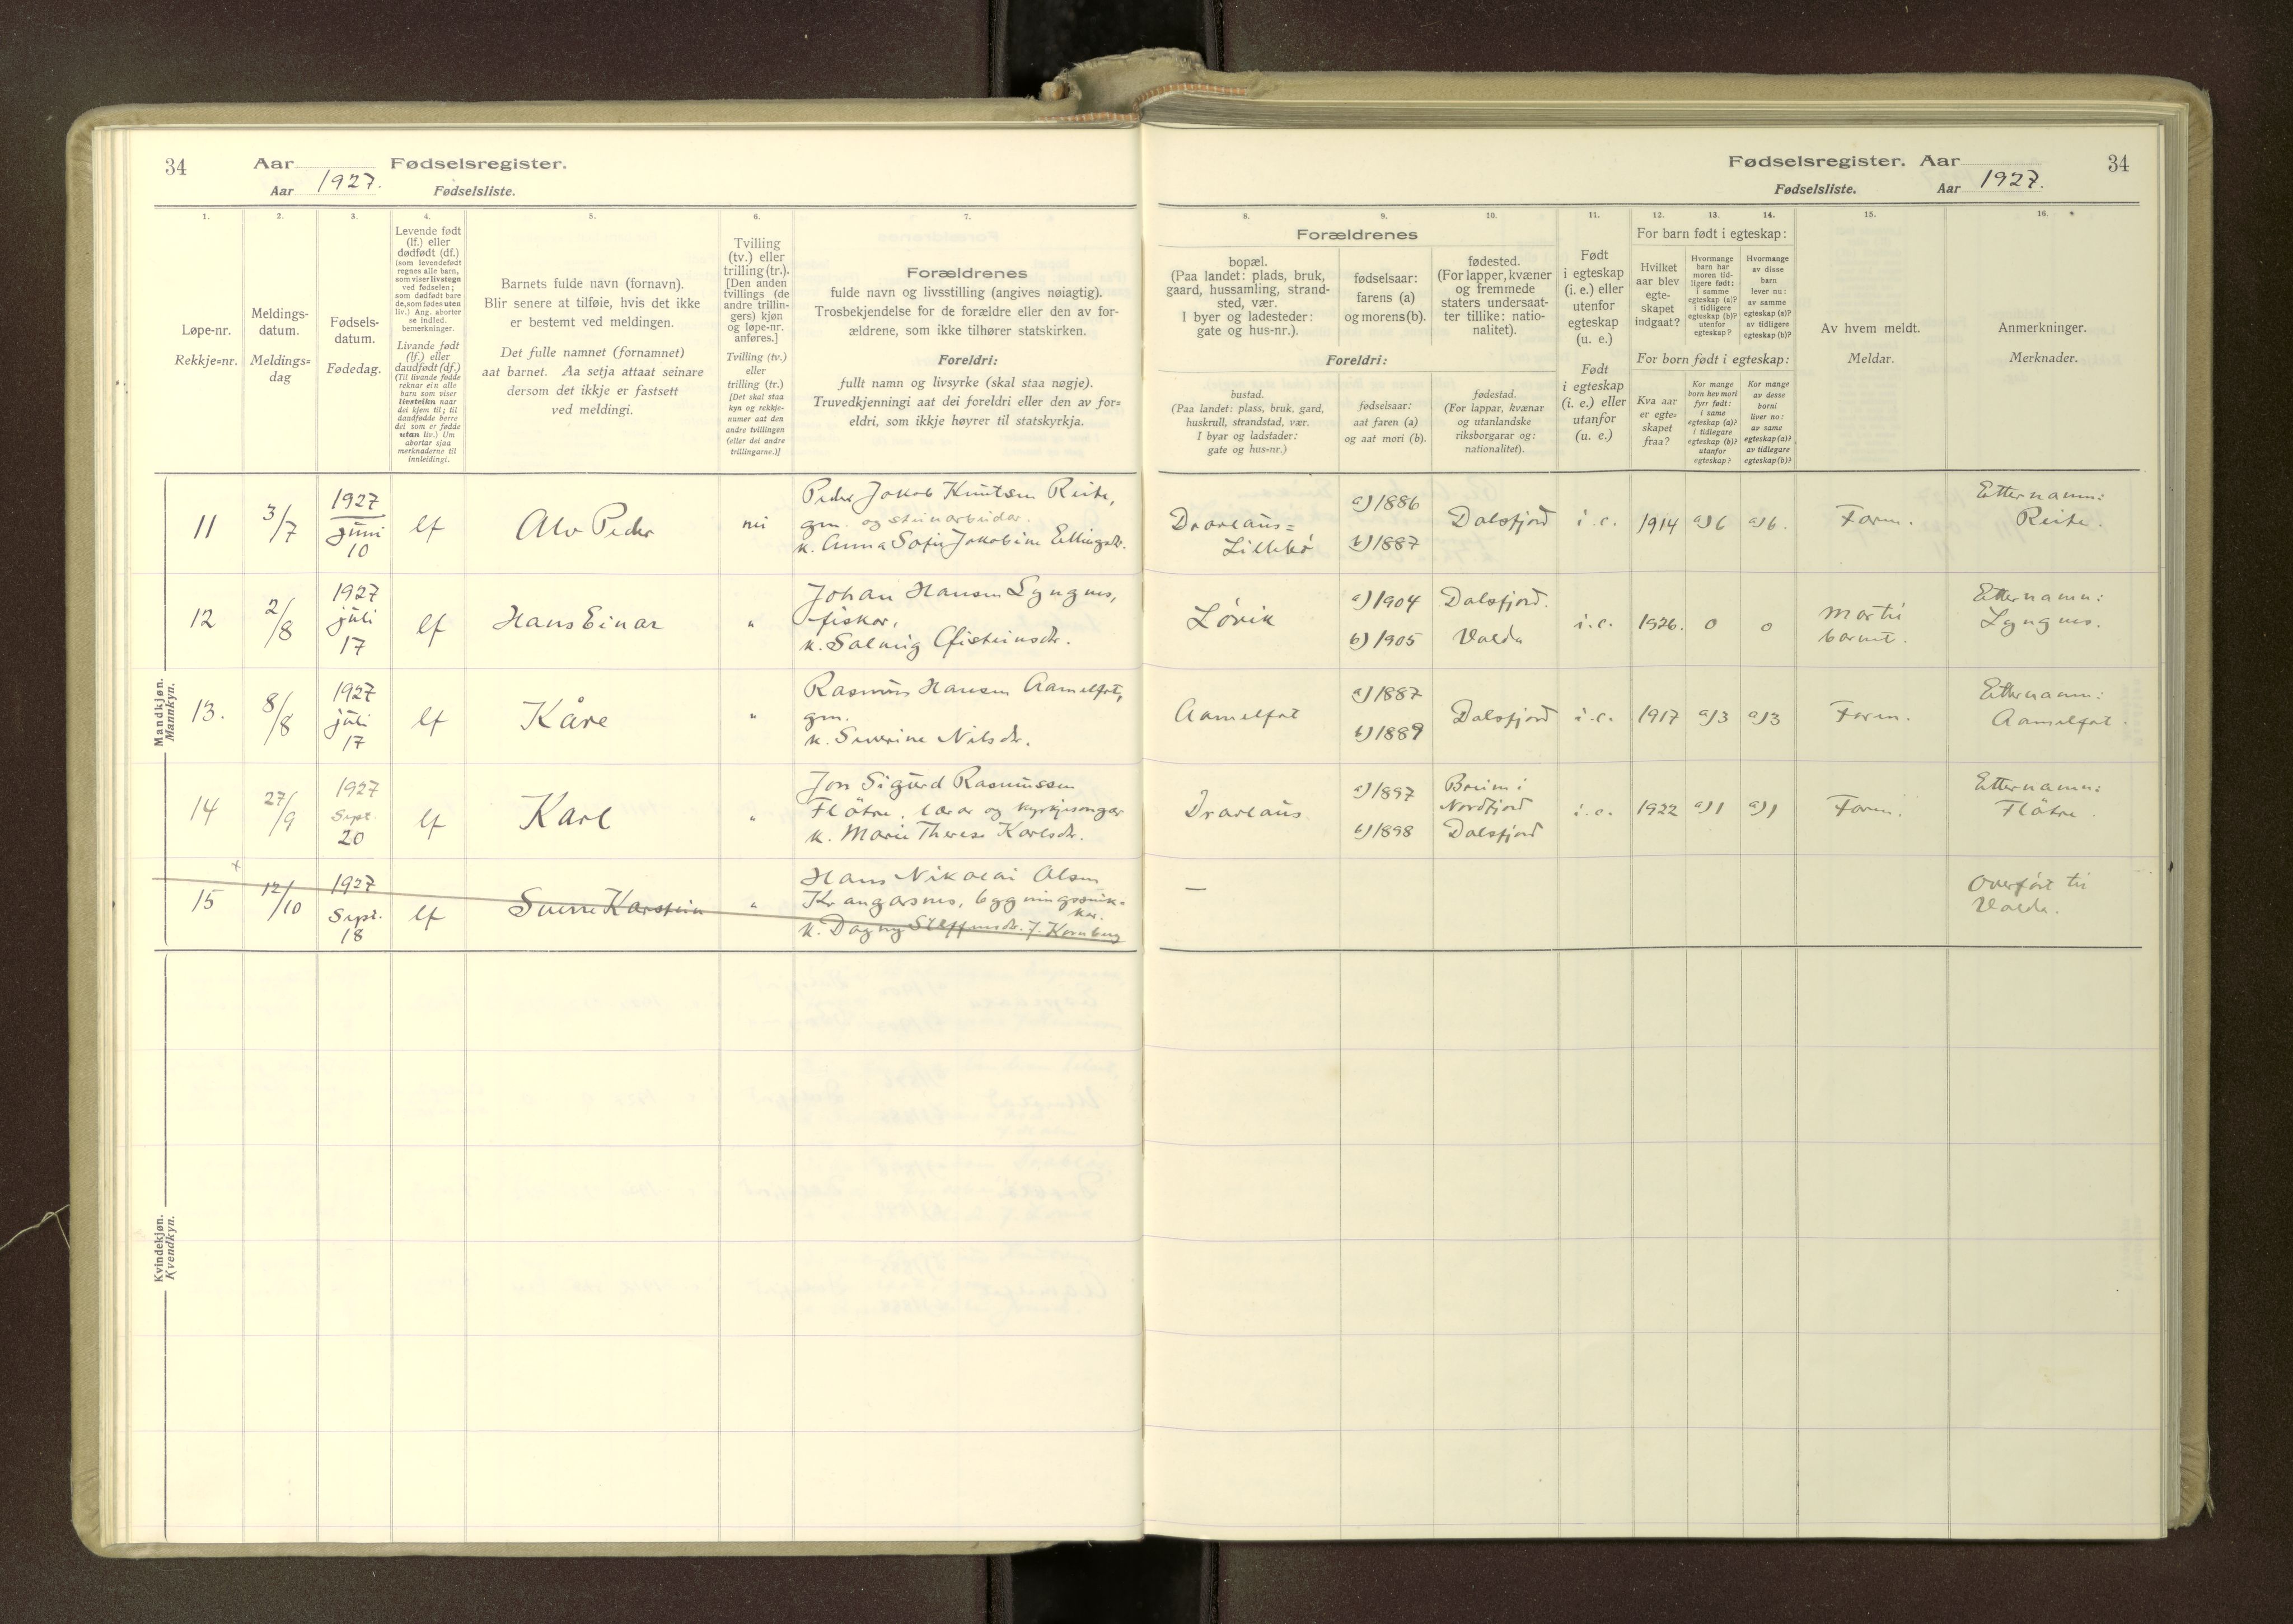 34 Aar Fødselsregister.
Aar 1927. Fødselsliste.
Fødselsregister. Aar 34
Fødselsliste. Aar 1927.
1. 2. 3. 4. 5. 6. 7. 8. 9. 10. 11. 12. 13. 14. 15. 16.
Løpe-nr.
Rekkje=nr.
Meldings-
datum.
Meldings=
dag
Fødsels-
datum.
Fødedag.
Levende født
(lf.) eller
dødfødt (df.)
(som levendefødt
regnes alle barn,
som viser livstegn
ved fødselen;
som dødfødt bare
de, som fødes uten
liv.) Ang. aborter
se indled.
bemerkninger.
Livande født
(lf.) eller
daudfødt (df.)
(Til livande fødde
reknar ein alle
barn som viser
livsteikn naar
dei kjem til; til
daudfødde berre
dei som er fødde
utan liv.) Um
abortar sjaa
merknaderne til
innleidingi.
Barnets fulde navn (fornavn).
Blir senere at tilføie, hvis det ikke
er bestemt ved meldingen.
Det fulle namnet (fornamnet)
aat barnet. Aa setja attaat seinare
dersom det ikkje er fastsett
ved meldingi.
Tvilling
(tv.) eller
trilling (tr.).
[Den anden
tvillings (de
andre trillin-
gers) kjøn
og løpe-nr.
anføres.]
Tvilling (tv.)
eller
trilling (tr.)
[Det skal staa
kyn og rekkje-
numer aat den
andre tvillingen
(eller dei andre
trillingarne.)]
Forældrenes
fulde navn og livsstilling (angives nøiagtig).
Trosbekjendelse for de forældre eller den av for-
ældrene, som ikke tilhører statskirken.
Foreldri:
fullt namn og livsyrke (skal staa nøgje).
Truvedkjenningi aat dei foreldri eller den av for=
eldri, som ikkje høyrer til statskyrkja.
Forældrenes
bopæl.
(Paa landet: plads, bruk,
gaard, hussamling, strand-
sted, vær.
I byer og ladesteder:
gate og hus-nr.).
Foreldri:
bustad.
(Paa landet: plass, bruk, gard,
huskrull, strandstad, vær.
I byar og ladstader:
gate og hus=nr.)
fødselsaar:
farens (a)
og morens (b).
fødselsaar:
aat faren (a)
og aat mori (b).
fødested.
(For lapper, kvæner
og fremmede
staters undersaat-
ter tillike: natio-
nalitet).
fødestad.
(For lappar, kvænar
og utanlandske
riksborgarar og:
nationalitet).
Født
i egteskap
(i. e.) eller
utenfor
egteskap
(u. e.)
Født
i egteskap
(i. e.) eller
utanfor
(u. e.)
For barn født i egteskap:
Hvilket
aar blev
egte-
skapet
indgaat?
For born født i egteskap:
Kva aar
er egte=
skapet
fraa?
Hvormange
barn har
moren tid-
ligere født:
i samme
egteskap (a)?
i tidligere
egteskap (b)?
utenfor
egteskap?
Kor mange
born hev mori
fyrr født:
i same
egteskap (a)?
i tidlegare
egteskap (b)?
utanfor
egteskap?
Hvormange
av disse
barn
lever nu:
av samme
egteskap (a)?
av tidligere
egteskap (b)?
Kor mange
av desse
borni
liver no:
av same
egteskap (a)?
av tidlegare
egteskap (b)?
Av hvem meldt.
Meldar.
Anmerkninger.
Merknader.
Mandkjøn.
Mannkyn.
11 3/7 1927 juni 10 lf Alv Peder nei
Peder Jakob Knutsen Reite,
gm. og steinarbeidar.
k. Anna Sofie Jakobine Ellingsdr.
a) 1886 b) 1887 Dalsfjord i. e. 1914 a) 6 a) 6. Faren.
Etternamn:
Reite.
12 2/8 1927 juli 17 lf Hans Einar "
Johan Hansen Lyngnes,
fiskar,
k. Solveig Øisteinsdr.
Løvik a) 1904 Dalsfjord. b) 1905 Volda i. e. 1926. 0 0
Mor til
barnet.
Etternamn:
Lyngnes.
13. 8/8 1927 juli 17 lf Kåre "
Rasmus Hansen Aamelfot,
gm.
k. Severine Nilsdr.
Aamelfot a) 1887 b) 1889 Dalsfjord i. e. 1917 a) 3 a) 3 Faren.
Etternamn:
Aamelfot.
14 27/9 1927 Sept. 20 lf Karl "
Jon Sigurd Rasmussen
Fløtre, lærar og kyrkjesongar
k. Marie Therese Karlsdr.
Dravlaus a) 1897 Breim i Nordfjord b) 1898 Dalsfjord i. e. 1922 a) 1 a) 1 Faren.
Etternamn:
Fløtre.
15 12/10 1927 Sept. 18 lf Sverre Karstein "
Hans Nikolai Olsen
Krangarsnes, bygningssnik-
kar.
k. Dagny Steffensdr. f. Kornberg
—
Overført til
Volda.
Kvindekjøn.
Kvendkyn.